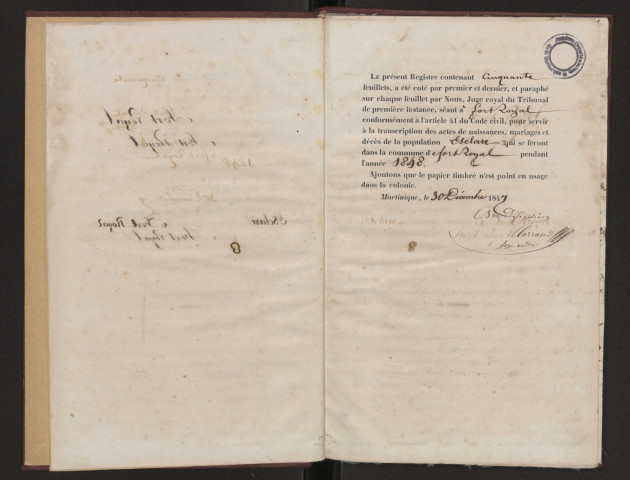 La présent Registre contenant Cinquante
feuillets, a été coté par premier et dernier, et paraphé
sur chaque feuillet par Nous, Juge royal du Tribunal
de première instance, séant à fort Royal
conformément à l'article 41 du Code civil, pour servir
à la transcription des actes de naissances, mariages et
décès de la population Esclave qui se feront
dans la commune d fort Royal pendant
l'année 1848.
Ajoutons que le papier timbré n'est point en usage
dans la colonie.
Martinique, le 30 Décembre 1847